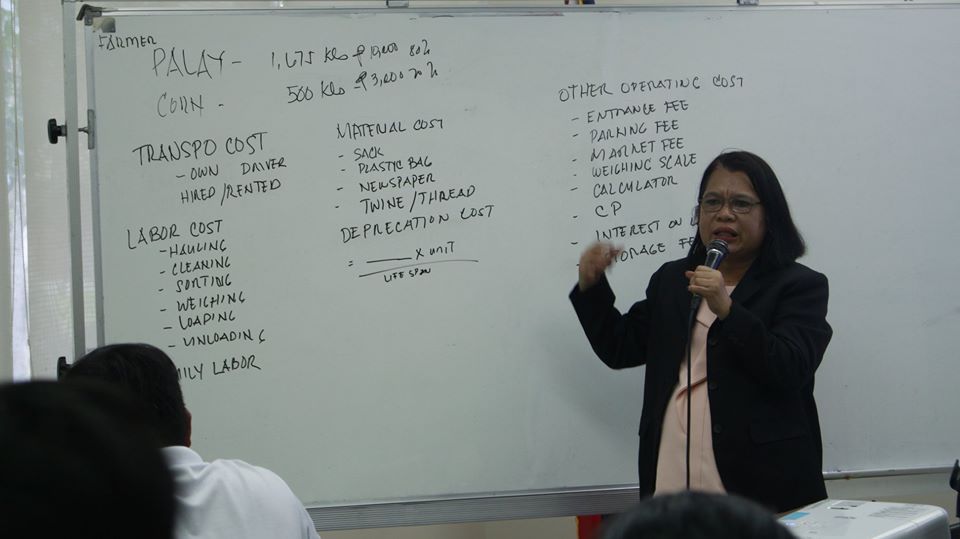 FARMER
PALAY - 1,675 Klo @ 80%
CORN - 500 Klo 3,000 20%
TRANSPO COST
- OWN DRIVER
HIRED/RENTED
LABOR COST
- HAULING
- CLEANING
- SORTING
- WEIGHING
- LOADING
- UNLOADING
LABOR
MATERIAL COST
- SACK
- PLASTIC BAG
- NEWSPAPER
- TWINE/THREAD
DEPRECATION COST
= ____ X UNIT
LIFE SPAN
OTHER OPERATING COST
- ENTRANCE FEE
- PARKING FEE
- MARKET FEE
- WEIGHING SCALE
- CALCULATOR
- CP
- INTEREST ON